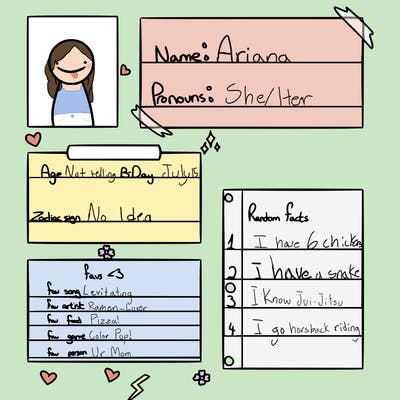 Name: Ariana
Pronouns: She/Her
Age Not telling BrDay July 15
Zodiac sign No Idea
favs <3
fav song Levitating
fav artist Ramen-Color
fav food Pizza!
fav game Color Pop!
fav person Ur Mom
Random facts
1 I have 6 chickens
2 I have a snake
3 I Know Jui-Jitsu
4 I go horsback riding